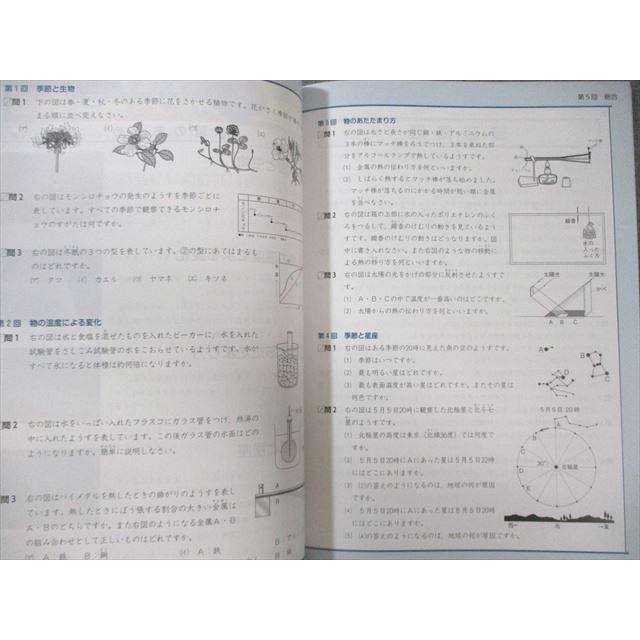 第1回 季節と生物
問1 下の図は春・夏・秋・冬のある季節に花をさかせる植物です。花がさく季節が
まる順に並べ変えなさい。
(ア)
(イ)
(ウ)
(エ)
問2 右の図はモンシロチョウの発生のようすを季節ごとに
表しています。すべての季節で観察できるモンシロチ
ョウのすがたは何ですか。
問3 右の図は冬眠の3つの型を表しています。②の型にあてはまるも
のはどれですか。
(ア) クマ (イ) カエル (ウ) ヤマネ (エ) キツネ
第2回 物の温度による変化
問1 右の図は氷と食塩を混ぜたものを入れたビーカーに、水を入れた
試験管をさしこみ試験管の水をこおらせているようすです。水が
すべて氷になると体積は約何倍になりますか。
問2 右の図は水をいっぱい入れたフラスコにガラス管をつけ、熱湯の
中に入れたようすを表しています。この後ガラス管の水面はどの
ようになりますか。簡単に説明しなさい。
問3 右の図はバイメタルを熱したときの曲がりのようすを表して
います。熱したときにぼう張する割合の大きい金属は
A・Bのどちらですか。また右図のようになる金属A・B
の組み合わせとして正しいものはどれですか。
(ア) A：鉄 B：銅 (イ) A：銅
A
B
第5回 総合
第3回 物のあたたまり方
問1 右の図は太さと長さが同じ銅・鉄・アルミニウムの
3本の棒にマッチ棒をろうでつけ、3本を束ねた部
分をアルコールランプで熱しているようすです。
(1) 金属の熱の伝わり方を何といいますか。
(2) しばらく熱するとマッチ棒が落ち始めました。
マッチ棒が落ちるのにかかる時間が短い順に金属
を並べなさい。
問2 右の図は箱の上部に氷の入ったポリエチレンのふく
ろをつるして、線香のけむりの動きを見ているよう
すです。線香のけむりの動きはどうなりますか。図
中に書き入れなさい。また右図のような物の移動に
よる熱の伝わり方を何といいますか。
線香
氷の
入った
ふくろ
問3 右の図は太陽の光をかげの部分に反射させたようすで
す。
(1) A・B・Cの中で温度が一番高いのはどこですか。
(2) 太陽からの熱の伝わり方を何といいますか。
太陽光 太陽光
かべ
A B C
第4回 季節と星座
問1 右の図はある季節の20時に見えた南の空のようすです。
(1) 季節はいつですか。
(2) 最も明るい星はどれですか。
(3) 最も表面温度が高い星はどれですか。またその星は
何色ですか。
A
B
C
D
問2 右の図は5月5日20時に観察した北極星と北斗七
星のようすです。
(1) 北極星の高度は東京（北緯36度）では何度で
すか。
(2) 5月5日20時にAにあった星は5月5日22時
にはどこにありますか。
(3) (2)の答えのようになるのは、地球の何が原因
ですか。
(4) 5月5日20時にAにあった星は8月5日20時
にはどこにありますか。
(5) (4)の答えのようになるのは、地球の何が原因ですか。
5月5日 20時
30°
北極星
西 北 東